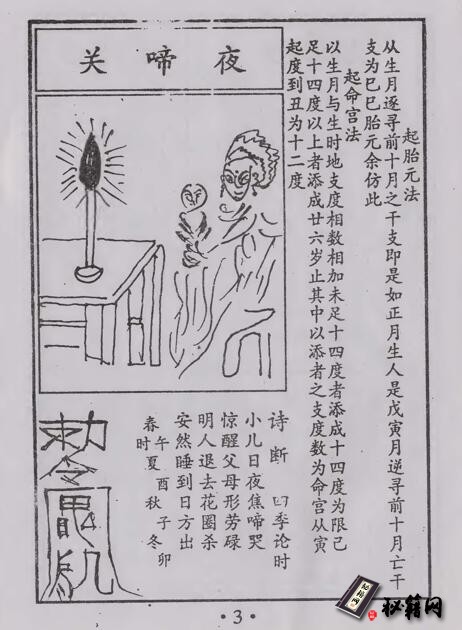 起胎元法
从生月逐寻前十月之干支即是如正月生人是戊寅月逆寻前十月亡干
支为巳巳胎元余仿此
起命宫法
以生月与生时地支度相数相加未足十四度者添成十四度为限已
足十四度以上者添成廿六岁止其中以添者之支度数为命宫从寅
起度到丑为十二度
夜啼关
诗断 四季论时
小儿日夜焦啼哭
惊醒父母形劳碌
明人退去花圈杀
安然睡到日方出
午酉子卯
春夏秋冬
时
敕令
·3·
秘籍网